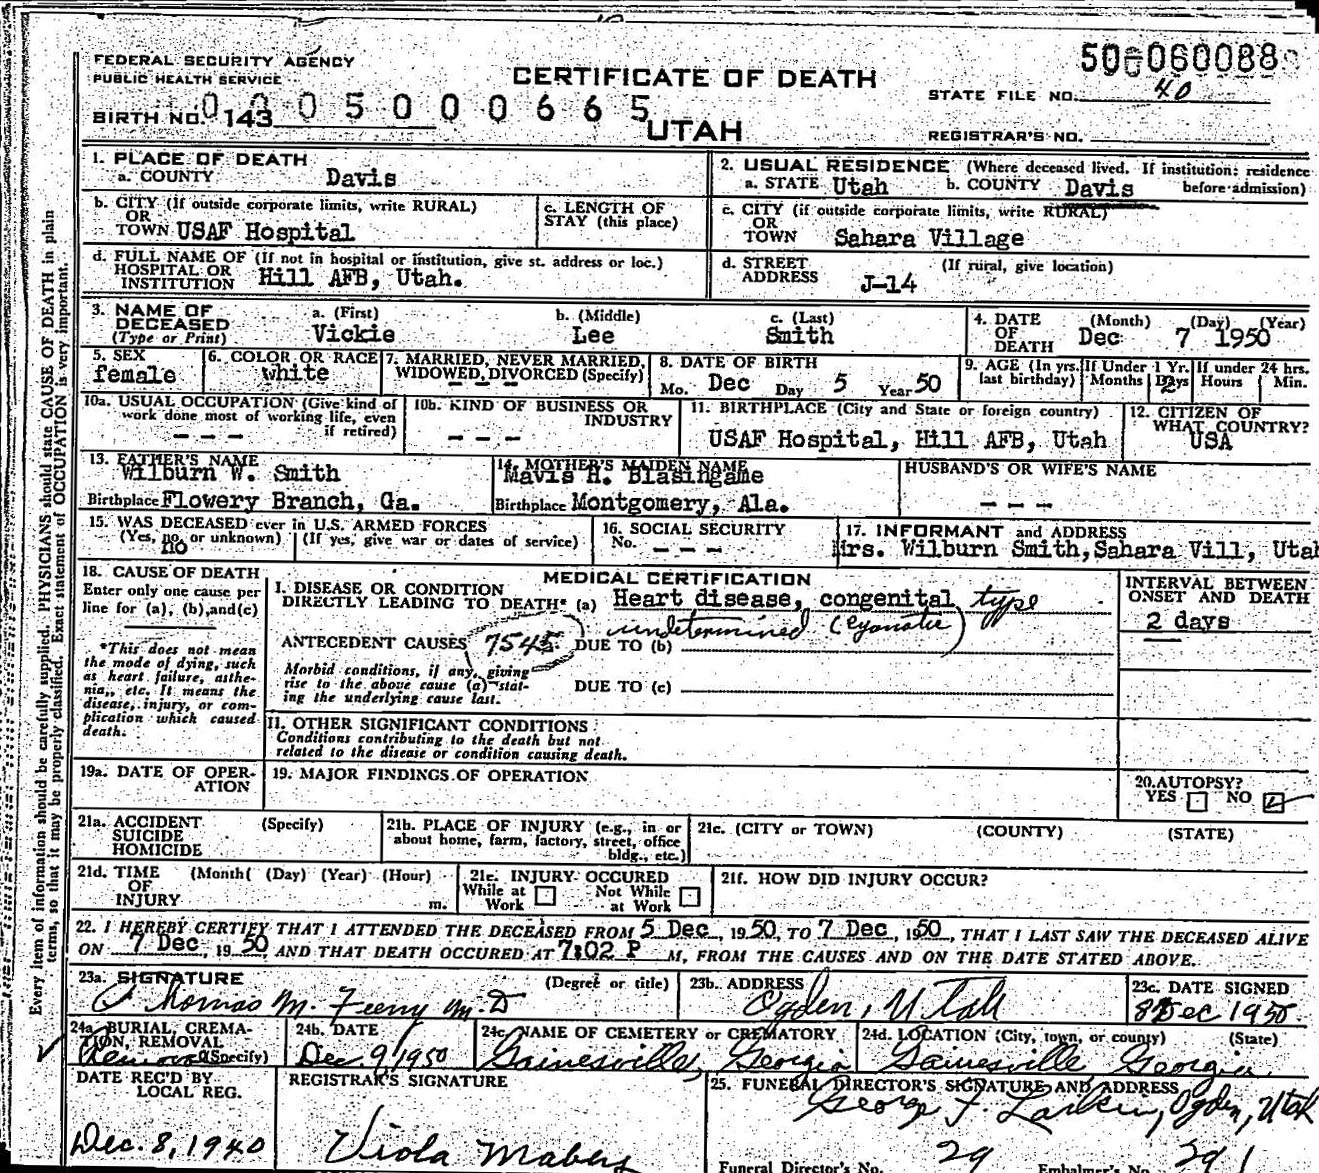 FEDERAL SECURITY AGENCY
PUBLIC HEALTH SERVICE
CERTIFICATE OF DEATH
STATE FILE NO. 40
BIRTH NO. 143
0005000665
UTAH
REGISTRAR'S NO.
1. PLACE OF DEATH
a. COUNTY Davis
2. USUAL RESIDENCE (Where deceased lived. If institution: residence before admission)
a. STATE Utah b. COUNTY Davis
b. CITY (If outside corporate limits, write RURAL) OR TOWN USAF Hospital
c. LENGTH OF STAY (this place)
c. CITY (if outside corporate limits, write RURAL) OR TOWN Sahara Village
d. FULL NAME OF (If not in hospital or institution, give st. address or loc.) HOSPITAL OR INSTITUTION Hill AFB, Utah.
d. STREET ADDRESS (If rural, give location) J-14
3. NAME OF DECEASED (Type or Print)
a. (First) Vickie
b. (Middle) Lee
c. (Last) Smith
4. DATE OF DEATH (Month) (Day) (Year) Dec 7 1950
5. SEX female
6. COLOR OR RACE white
7. MARRIED, NEVER MARRIED, WIDOWED, DIVORCED (Specify) ---
8. DATE OF BIRTH Mo. Dec Day 5 Year 50
9. AGE (In yrs. last birthday) If Under 1 Yr. Months Days 2 If under 24 hrs. Hours Min.
10a. USUAL OCCUPATION (Give kind of work done most of working life, even if retired) ---
10b. KIND OF BUSINESS OR INDUSTRY ---
11. BIRTHPLACE (City and State or foreign country) USAF Hospital, Hill AFB, Utah
12. CITIZEN OF WHAT COUNTRY? USA
13. FATHER'S NAME Wilburn W. Smith
Birthplace Flowery Branch, Ga.
14. MOTHER'S MAIDEN NAME Mavis H. Blasingame
Birthplace Montgomery, Ala.
HUSBAND'S OR WIFE'S NAME ---
15. WAS DECEASED ever in U.S. ARMED FORCES (Yes, no, or unknown) no (If yes, give war or dates of service)
16. SOCIAL SECURITY No. ---
17. INFORMANT and ADDRESS Mrs. Wilburn Smith, Sahara Vill, Utah
18. CAUSE OF DEATH
Enter only one cause per line for (a), (b), and (c)
*This does not mean the mode of dying, such as heart failure, asthenia, etc. It means the disease, injury, or complication which caused death.
MEDICAL CERTIFICATION
I. DISEASE OR CONDITION DIRECTLY LEADING TO DEATH* (a) Heart disease, congenital type
undetermined (cyanotic)
ANTECEDENT CAUSES 7545 DUE TO (b)
Morbid conditions, if any, giving rise to the above cause (a) stating the underlying cause last.
DUE TO (c)
INTERVAL BETWEEN ONSET AND DEATH
2 days
II. OTHER SIGNIFICANT CONDITIONS
Conditions contributing to the death but not related to the disease or condition causing death.
19a. DATE OF OPERATION
19. MAJOR FINDINGS OF OPERATION
20. AUTOPSY? YES NO
21a. ACCIDENT SUICIDE HOMICIDE (Specify)
21b. PLACE OF INJURY (e.g., in or about home, farm, factory, street, office bldg., etc.)
21c. (CITY or TOWN) (COUNTY) (STATE)
21d. TIME OF INJURY (Month( (Day) (Year) (Hour) m.
21e. INJURY OCCURED While at Work Not While at Work
21f. HOW DID INJURY OCCUR?
22. I HEREBY CERTIFY THAT I ATTENDED THE DECEASED FROM 5 Dec, 1950, TO 7 Dec, 1950, THAT I LAST SAW THE DECEASED ALIVE
ON 7 Dec, 1950, AND THAT DEATH OCCURED AT 7:02 P M, FROM THE CAUSES AND ON THE DATE STATED ABOVE.
23a. SIGNATURE (Degree or title) Thomas M. Feeny M.D
23b. ADDRESS Ogden, Utah
23c. DATE SIGNED 8 Dec 1950
24a. BURIAL, CREMATION, REMOVAL (Specify) Removal
24b. DATE Dec. 9, 1950
24c. NAME OF CEMETERY or CREMATORY Gainesville, Georgia
24d. LOCATION (City, town, or county) (State) Gainesville Georgia
DATE REC'D BY LOCAL REG. Dec. 8, 1940
REGISTRAR'S SIGNATURE Viola Mabey
25. FUNERAL DIRECTOR'S SIGNATURE AND ADDRESS George F. Larkin, Ogden, Utah
Funeral Director's No. 29 Embalmer's No. 291
Every item of information should be carefully supplied. PHYSICIANS should state CAUSE OF DEATH in plain
terms, so that it may be properly classified. Exact statement of OCCUPATION is very important.